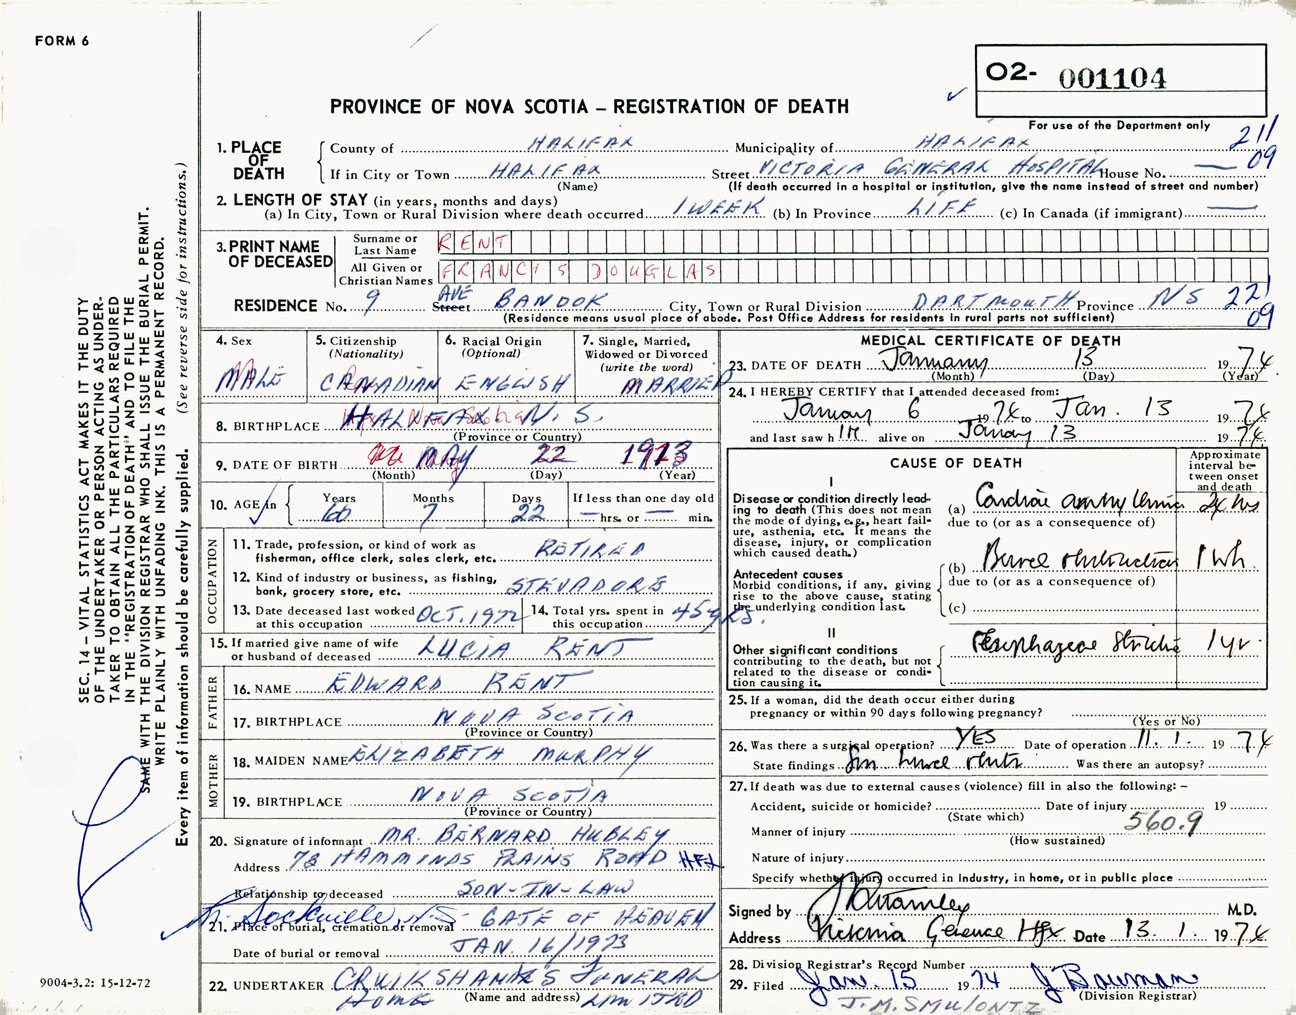 FORM 6
O2- 001104
PROVINCE OF NOVA SCOTIA – REGISTRATION OF DEATH
For use of the Department only
211
09
1. PLACE OF DEATH
County of HALIFAX Municipality of HALIFAX
If in City or Town HALIFAX Street VICTORIA GENERAL HOSPITAL House No. —
(Name) (If death occurred in a hospital or institution, give the name instead of street and number)
2. LENGTH OF STAY (in years, months and days)
(a) In City, Town or Rural Division where death occurred 1 WEEK (b) In Province LIFE (c) In Canada (if immigrant) —
3. PRINT NAME OF DECEASED
Surname or Last Name RENT
All Given or Christian Names FRANCIS DOUGLAS
RESIDENCE No. 9 Street AVE BANOOK City, Town or Rural Division DARTMOUTH Province NS
221
09
(Residence means usual place of abode. Post Office Address for residents in rural parts not sufficient)
4. Sex
MALE
5. Citizenship
(Nationality)
CANADIAN
6. Racial Origin
(Optional)
ENGLISH
7. Single, Married,
Widowed or Divorced
(write the word)
MARRIED
8. BIRTHPLACE HALIFAX N.S.
(Province or Country)
9. DATE OF BIRTH MAY 22 1913
(Month) (Day) (Year)
10. AGE in
Years 60
Months 7
Days 22
If less than one day old
— hrs. or — min.
OCCUPATION
11. Trade, profession, or kind of work as
fisherman, office clerk, sales clerk, etc. RETIRED
12. Kind of industry or business, as fishing,
bank, grocery store, etc. STEVADORE
13. Date deceased last worked
at this occupation OCT. 1972
14. Total yrs. spent in
this occupation 45 yRS.
15. If married give name of wife
or husband of deceased LUCIA RENT
FATHER
16. NAME EDWARD RENT
17. BIRTHPLACE NOVA SCOTIA
(Province or Country)
MOTHER
18. MAIDEN NAME ELIZABETH MURPHY
19. BIRTHPLACE NOVA SCOTIA
(Province or Country)
20. Signature of informant MR. BERNARD HUBLEY
Address 78 HAMMONDS PLAINS ROAD HFX
Relationship to deceased SON-IN-LAW
Sackville, N.S. GATE OF HEAVEN
21. Place of burial, cremation or removal
Date of burial or removal JAN. 16/1973
22. UNDERTAKER CRUIKSHANK'S FUNERAL
HOME (Name and address) LIMITED
MEDICAL CERTIFICATE OF DEATH
23. DATE OF DEATH January 13 1974
(Month) (Day) (Year)
24. I HEREBY CERTIFY that I attended deceased from:
January 6 1974 to Jan. 13 1974
and last saw h im alive on January 13 1974
CAUSE OF DEATH
Approximate
interval be-
tween onset
and death
I
Disease or condition directly lead-
ing to death (This does not mean
the mode of dying, e.g., heart fail-
ure, asthenia, etc. It means the
disease, injury, or complication
which caused death.)
(a) Cardiac arrhythmia 24 hrs
due to (or as a consequence of)
Antecedent causes
Morbid conditions, if any, giving
rise to the above cause, stating
the underlying condition last.
(b) Bowel obstruction 1 wk.
due to (or as a consequence of)
(c)
II
Other significant conditions
contributing to the death, but not
related to the disease or condi-
tion causing it.
Oesophageal stricture 1 yr.
25. If a woman, did the death occur either during
pregnancy or within 90 days following pregnancy?
(Yes or No)
26. Was there a surgical operation? YES Date of operation 11. 1. 1974
State findings bowel obstr. Was there an autopsy?
27. If death was due to external causes (violence) fill in also the following: –
Accident, suicide or homicide? Date of injury 19
(State which)
560.9
Manner of injury
(How sustained)
Nature of injury
Specify whether injury occurred in industry, in home, or in public place
Signed by M.D.
Address Victoria General Hfx Date 13. 1. 1974
28. Division Registrar's Record Number
29. Filed Jan. 15 1974 J Bauman
(Division Registrar)
SEC. 14 – VITAL STATISTICS ACT MAKES IT THE DUTY
OF THE UNDERTAKER OR PERSON ACTING AS UNDER-
TAKER TO OBTAIN ALL THE PARTICULARS REQUIRED
IN THE "REGISTRATION OF DEATH" AND TO FILE THE
SAME WITH THE DIVISION REGISTRAR WHO SHALL ISSUE THE BURIAL PERMIT.
WRITE PLAINLY WITH UNFADING INK. THIS IS A PERMANENT RECORD.
Every item of information should be carefully supplied. (See reverse side for instructions.)
9004-3.2: 15-12-72